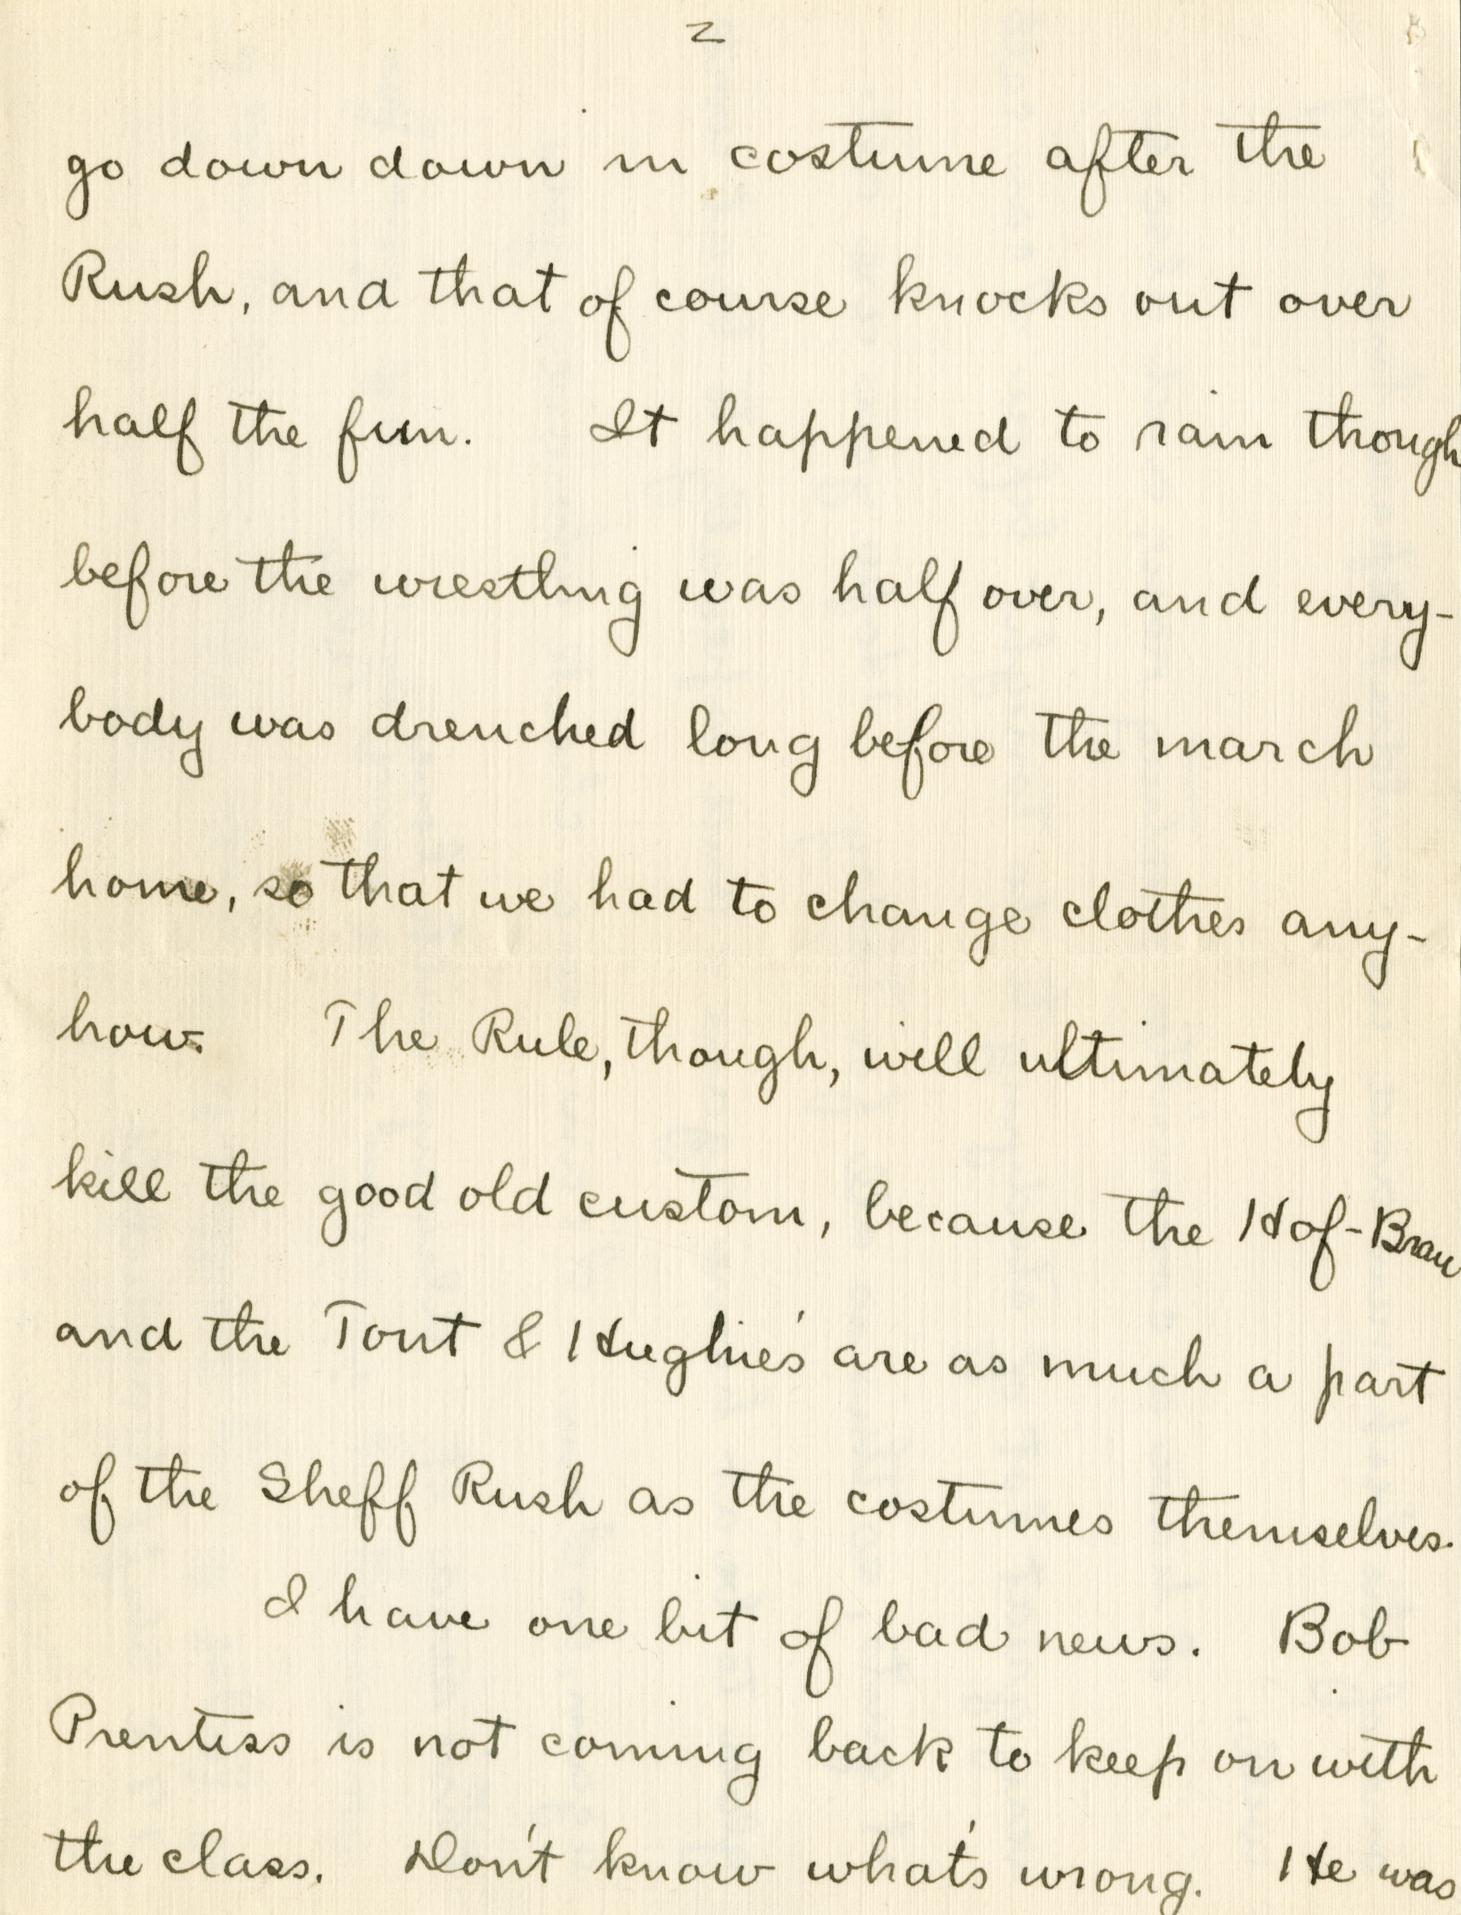 2
go down down in costume after the
Rush, and that of course knocks out over
half the fun. It happened to rain though
before the wrestling was half over, and every-
body was drenched long before the march
home, so that we had to change clothes any-
how. The Rule, though, will ultimately
kill the good old custom, because the Hof-Brau
and the Tont & Hughie's are as much a part
of the Sheff Rush as the costumes themselves.
I have one bit of bad news. Bob
Prentiss is not coming back to keep on with
the class. Don't know what's wrong. He was